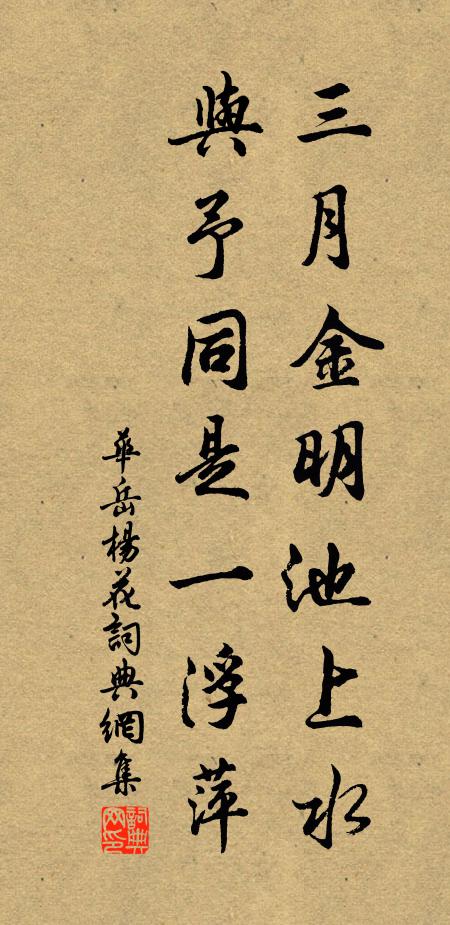 三月金明池上水
與予同是一浮萍
華岳楊花詞典網集
詞典網印